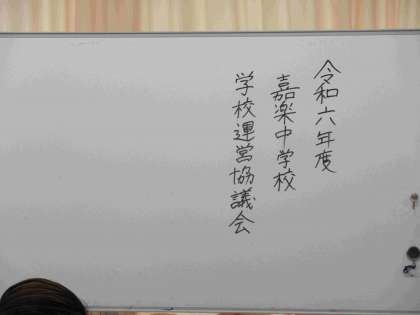 令和六年度
嘉楽中学校
学校運営協議会